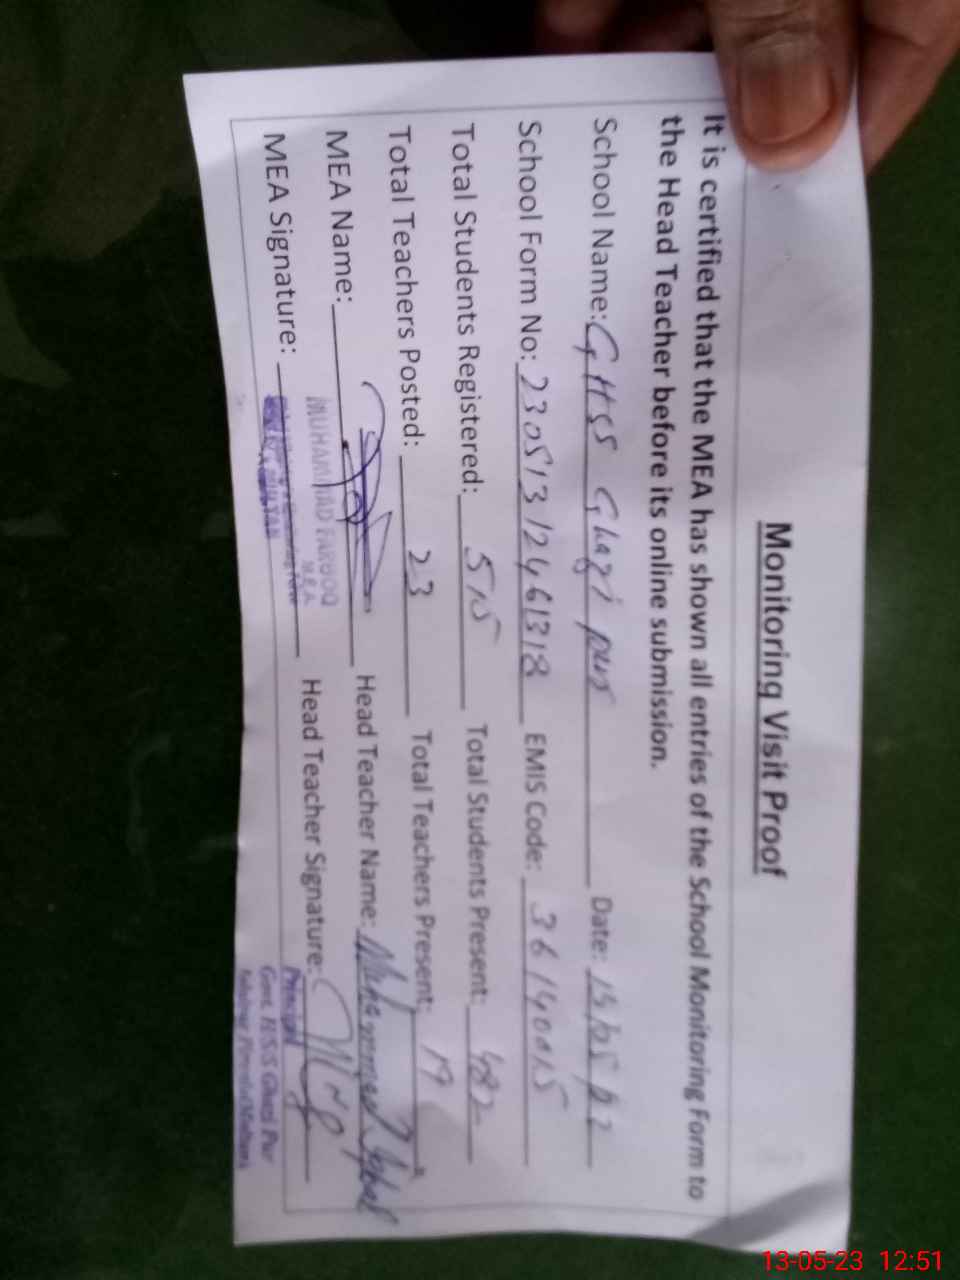 Monitoring Visit Proof
It is certified that the MEA has shown all entries of the School Monitoring Form to
the Head Teacher before its online submission.
School Name: GHSS Ghazi pur Date: 13/05/
School Form No: 23051312461318 EMIS Code: 36140015
Total Students Registered: 515 Total Students Present: 482
Total Teachers Posted: 23 Total Teachers Present: 19
MEA Name: Head Teacher Name: Muhammad Iqbal
MUHAMMAD FAROOQ
M.E.A
MEA Signature: Head Teacher Signature:
Principal
Govt. HSS Ghazi Pur
13-05-23 12:51